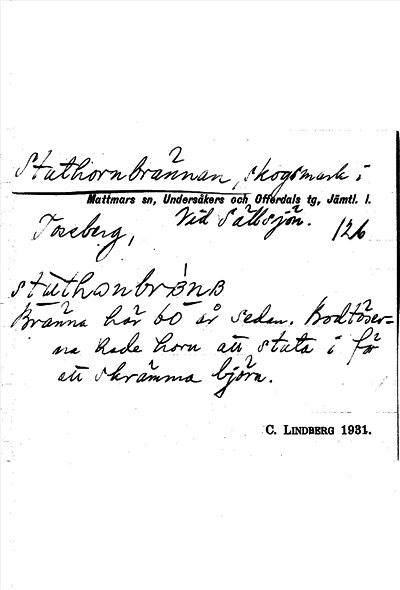 Stuthornbrännan, skogsmark i
Mattmars sn, Undersåkers och Offerdals tg, Jämtl. l.
Toseberg, Vid Sällsjön. 126
Bränna här 60 år sedan. Bodtöser=
na hade horn att stuta i för
att skrämma björn.
C. LINDBERG 1931.